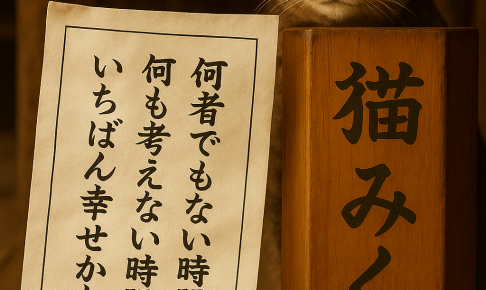 何者でもない時
何も考えない時
いちばん幸せか
猫みく